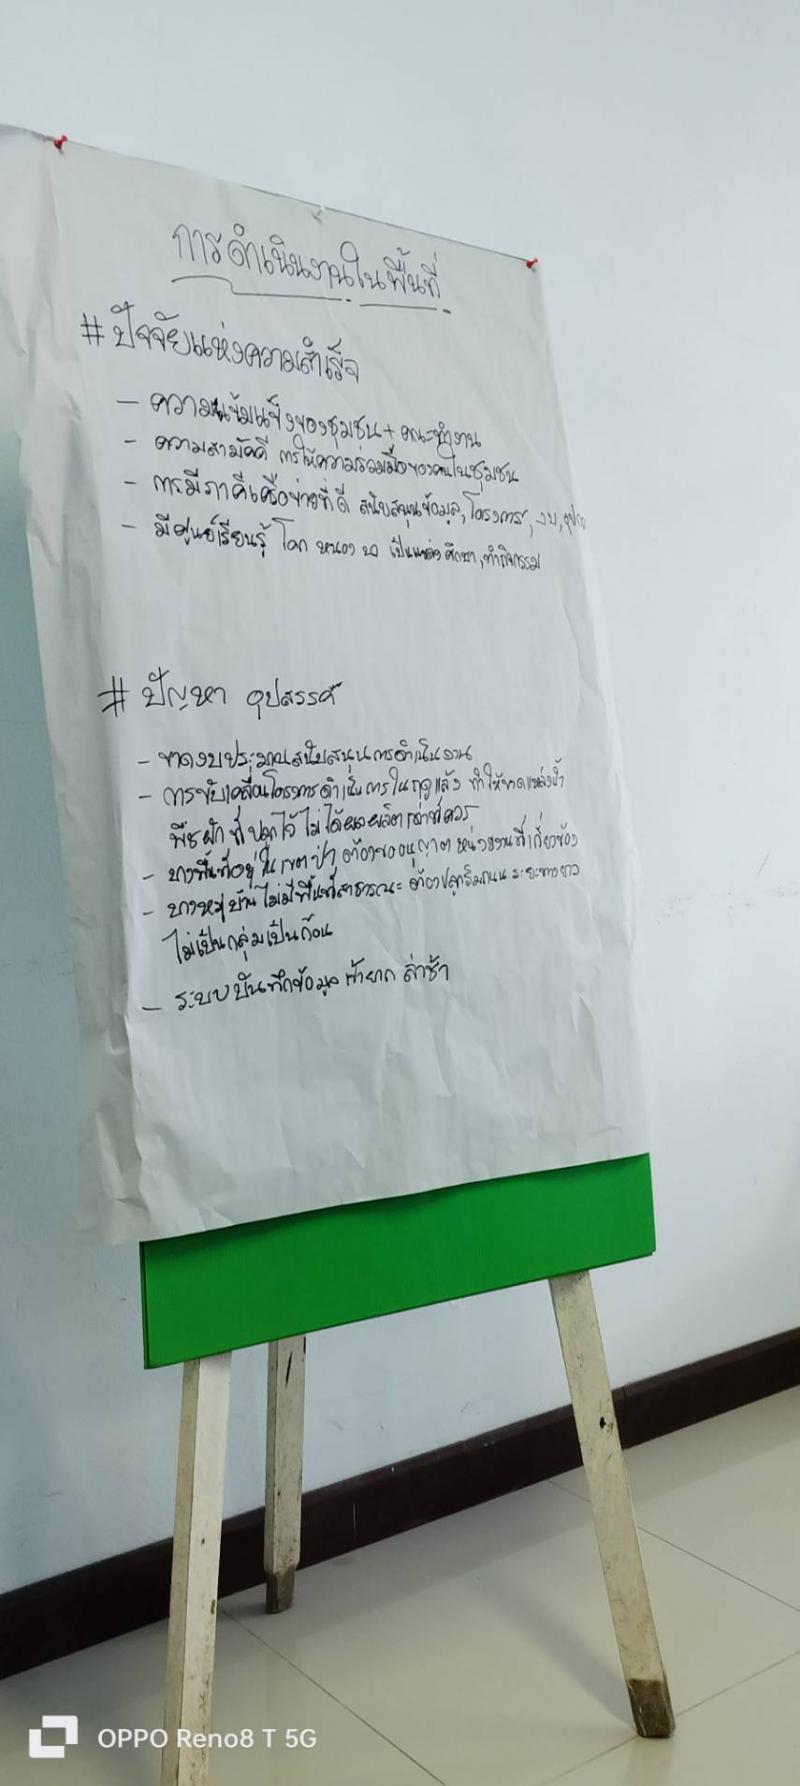 การดำเนินงานในพื้นที่
# ปัจจัยแห่งความสำเร็จ
- ความเข้มแข็งของชุมชน + คณะทำงาน
- ความสามัคคี การให้ความร่วมมือของคนในชุมชน
- การมีภาคีเครือข่ายที่ดี สนับสนุนข้อมูล, โครงการ, งบ,
- มีศูนย์เรียนรู้ โคก หนอง นา เป็นแหล่งศึกษา, ทำกิจกรรม
# ปัญหา อุปสรรค
- ขาดงบประมาณสนับสนุนการดำเนินงาน
- การขับเคลื่อนโครงการดำเนินการในฤดูแล้ง ทำให้ขาดแหล่งน้ำ
พืชผักที่ปลูกไว้ไม่ได้ผลผลิตเท่าที่ควร
- บางพื้นที่อยู่ในเขตป่า ต้องขออนุญาต หน่วยงานที่เกี่ยวข้อง
- บางหมู่บ้านไม่มีพื้นที่สาธารณะ ต้องปลูกริมถนน ระยะทางยาว
ไม่เป็นกลุ่มเป็นก้อน
- ระบบบันทึกข้อมูล เข้ายาก ล่าช้า
OPPO Reno8 T 5G